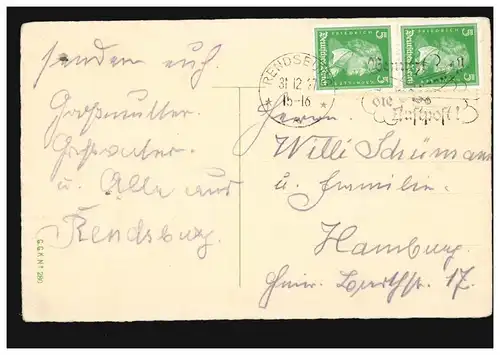 senden euch
Großmutter.
Großvater.
u. Alle aus
Rendsburg.
G.G.K.M.1
FRIEDRICH
Deutsches Reich
5
5
FRIEDRICH
Deutsches Reich
5
5
RENDSB
31.12.27
15-16
die
Luftpost!
Herrn
Willi Schümann
u. Familie.
Hamburg.
17.